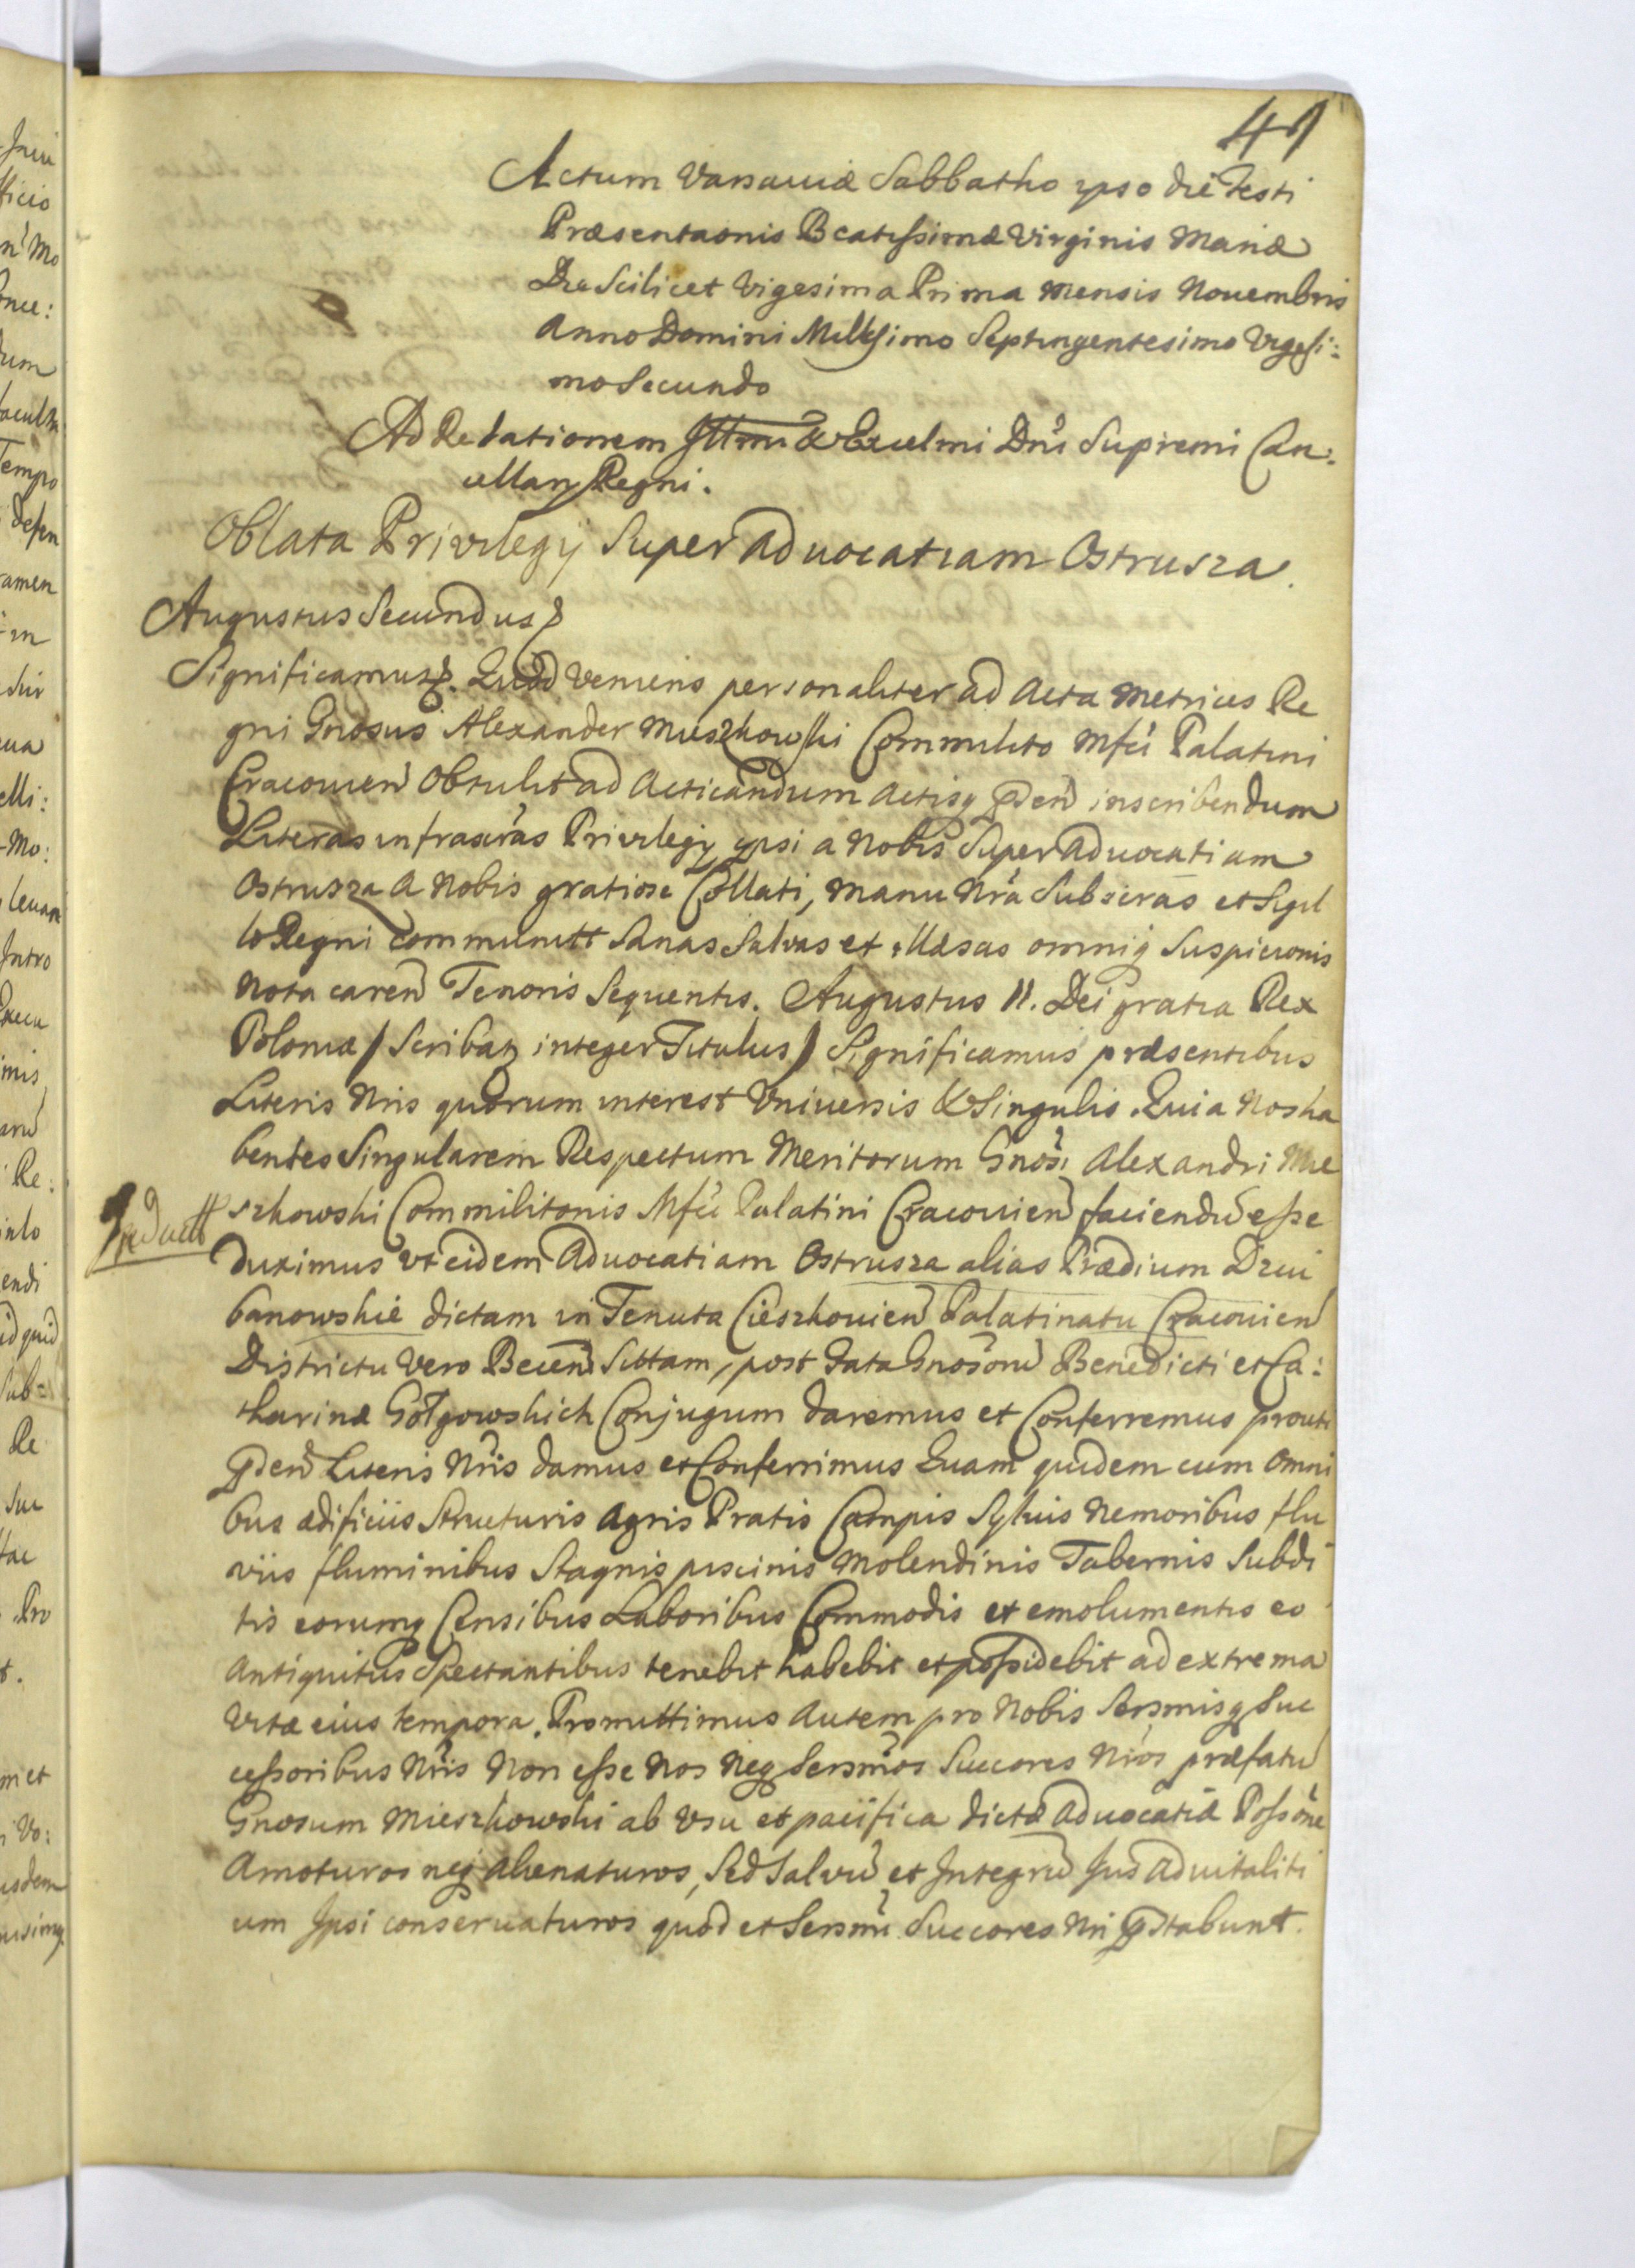 41
Actum Varsaviæ Sabbatho ipso die Festi
Præsentaonis Beatissimæ Virginis Mariæ
Die Scilicet Vigesima Prima Mensis Novembris
Anno Domini Millesimo Septingentesimo Vigesi:
mo Secundo
Ad Relationem Illmi & Excelmi Dni Supremi Can:
cellarij Regni.
Oblata Privilegij Super Aduocatiam Ostrusza.
Augustus Secundus
Significamus. Quod Veniens personaliter ad Acta Metrices Re
gni Gnosus Alexander Mieszkowski Commilito Mfci Palatini
Cracouien Obtulit ad Acticandum Actisq pden inscribendum
Literas infrascras Privilegij ipsi a Nobis Super Aduocatiam
Ostrusza a Nobis gratiose Collati, Manu Nra Subscras et Sigil
lo Regni communitt Sanas Salvas et illæsas omniq Suspicionis
Nota caren Tenoris Sequentis. Augustus II. Dei gratia Rex
Poloniæ / Scribatz integer Titulus / Significamus præsentibus
Literis Nris quorum interest Vniuersis & Singulis. Quia Nos ha
bentes Singularem Respectum Meritorum Gnosi Alexandri Mie
szkowski Commilitonis Mfci Palatini Cracouien faciendu esse
duximus vt eidem Aduocatiam Ostrusza alias Prædium Dzui
banowskie dictam in Tenuta Cieszkouien Palatinatu Cracouien
Districtu Vero Beccen Sittam, post Fata Gnosoru Benedicti et Ca:
tharinæ Gołgowskich Conjugum daremus et Conferremus prout
pden Literis Nris damus et Conferrimus Quam quidem cum Omni
bus ædificiis Structuris Agris Pratis Campis Sylvis Nemoribus flu
viis fluminibus Stagnis piscinis Molendinis Tabernis Subdi
tis eorumq Censibus Laboribus Commodis et emolumentis eo
Antiquitus Spectantibus tenebit habebit et possidebit ad extrema
Vitæ eius tempora. Promittimus Autem pro Nobis Sersmisq Suc
cessoribus Nris Non esse Nos Neq Sersmos Succores Nros præfatu
Gnosum Mieszkowski ab Vsu et paciifica dictæ Aduocatiæ Possone
Amoturos neq Alienaturos, Sed Salvu et Integru Jus Aduitaliti
um Ipsi conservaturos quod et Sersmi Succores Nri pstabunt.